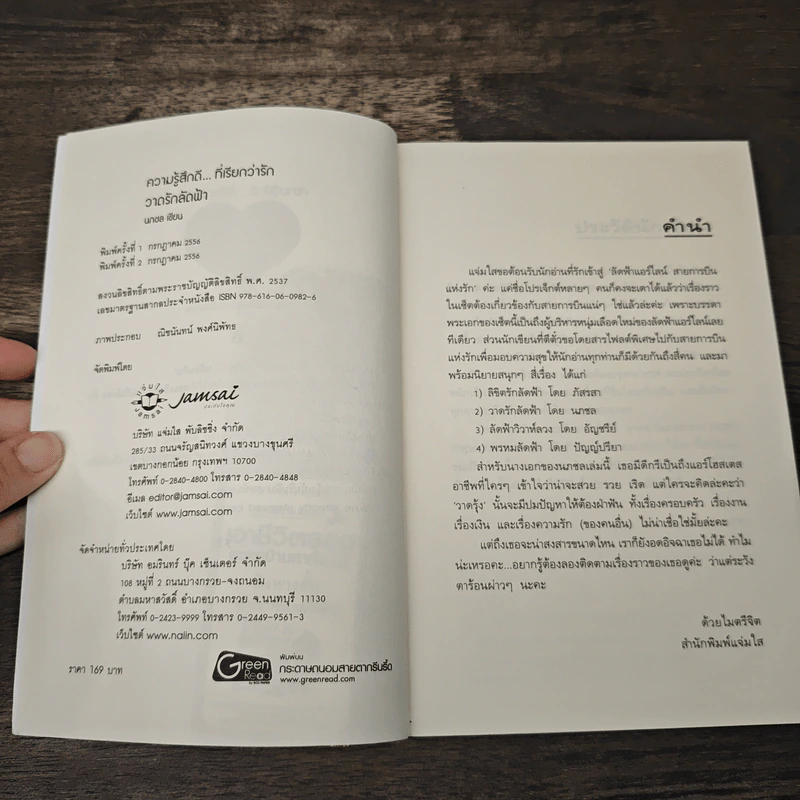 ความรู้สึกดี... ที่เรียกว่ารัก
วาดรักลัดฟ้า
นภชล เขียน
พิมพ์ครั้งที่ 1 กรกฎาคม 2556
พิมพ์ครั้งที่ 2 กรกฎาคม 2556
สงวนลิขสิทธิ์ตามพระราชบัญญัติลิขสิทธิ์ พ.ศ. 2537
เลขมาตรฐานสากลประจำหนังสือ ISBN 978-616-06-0982-6
ภาพประกอบ ณิชนันทน์ พงศ์นิพัทธ
จัดพิมพ์โดย
แจ่มใส
Jamsai
Jamsai
บริษัท แจ่มใส พับลิชชิ่ง จำกัด
285/33 ถนนจรัญสนิทวงศ์ แขวงบางขุนศรี
เขตบางกอกน้อย กรุงเทพฯ 10700
โทรศัพท์ 0-2840-4800 โทรสาร 0-2840-4848
อีเมล editor@jamsai.com
เว็บไซต์ www.jamsai.com
จัดจำหน่ายทั่วประเทศโดย
บริษัท อมรินทร์ บุ๊ค เซ็นเตอร์ จำกัด
108 หมู่ที่ 2 ถนนบางกรวย-จงถนอม
ตำบลมหาสวัสดิ์ อำเภอบางกรวย จ.นนทบุรี 11130
โทรศัพท์ 0-2423-9999 โทรสาร 0-2449-9561-3
เว็บไซต์ www.naiin.com
ราคา 169 บาท
Green
Read
พิมพ์บน
กระดาษถนอมสายตากรีนรี้ด
www.greenread.com
คำนำ
แจ่มใสขอต้อนรับนักอ่านที่รักเข้าสู่ 'ลัดฟ้าแอร์ไลน์ สายการบิน
แห่งรัก' ค่ะ แค่ชื่อโปรเจ็กต์หลายๆ คนก็คงจะเดาได้แล้วว่าเรื่องราว
ในเซ็ตต้องเกี่ยวข้องกับสายการบินแน่ๆ ใช่แล้วล่ะค่ะ เพราะบรรดา
พระเอกของเซ็ตนี้เป็นถึงผู้บริหารหนุ่มเลือดใหม่ของลัดฟ้าแอร์ไลน์เลย
ทีเดียว ส่วนนักเขียนที่ตีตั๋วขอโดยสารไฟลต์พิเศษไปกับสายการบิน
แห่งรักเพื่อมอบความสุขให้นักอ่านทุกท่านก็มีด้วยกันถึงสี่คน และมา
พร้อมนิยายสนุกๆ สี่เรื่อง ได้แก่
1) ลิขิตรักลัดฟ้า โดย ภัสรสา
2) วาดรักลัดฟ้า โดย นภชล
3) ลัดฟ้าวิวาห์ลวง โดย อัญชรีย์
4) พรหมลัดฟ้า โดย ปัญญ์ปรียา
สำหรับนางเอกของนภชลเล่มนี้ เธอมีดีกรีเป็นถึงแอร์โฮสเตส
อาชีพที่ใครๆ เข้าใจว่าน่าจะสวย รวย เริด แต่ใครจะคิดล่ะคะว่า
'วาดรุ้ง' นั้นจะมีปมปัญหาให้ต้องฝ่าฟัน ทั้งเรื่องครอบครัว เรื่องงาน
เรื่องเงิน และเรื่องความรัก (ของคนอื่น) ไม่น่าเชื่อใช่มั้ยล่ะคะ
แต่ถึงเธอจะน่าสงสารขนาดไหน เราก็ยังอดอิจฉาเธอไม่ได้ ทำไม
น่ะเหรอคะ...อยากรู้ต้องลองติดตามเรื่องราวของเธอดูค่ะ ว่าแต่ระวัง
ตาร้อนผ่าวๆ นะคะ
ด้วยไมตรีจิต
สำนักพิมพ์แจ่มใส